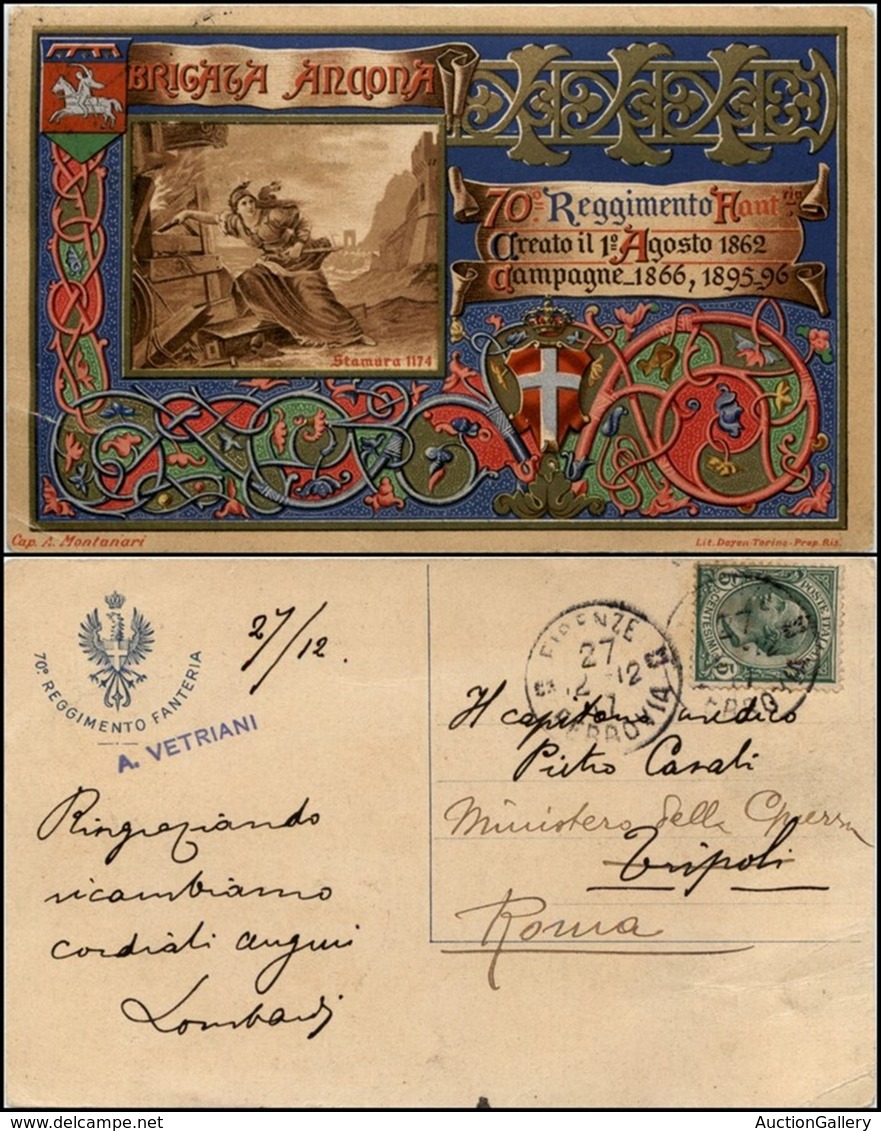 BRIGATA ANCONA
70º Reggimento Fant.ria
Creato il 1º Agosto 1862
Campagne 1866, 1895-96
Stamura 1174
Cap. A. Montanari
Lit. Doyen-Torino-Prop. Ris.
70º REGGIMENTO FANTERIA
27/12.
A. VETRIANI
FIRENZE
27
12 · 12
FERROVIA
POSTE ITALIANE
5
CENTESIMI
Il capitano medico
Pietro Casali
Ministero della Guerra
Tripoli
Roma
Ringraziando
ricambiamo
cordiali auguri
Lombardi
AuctionGallery